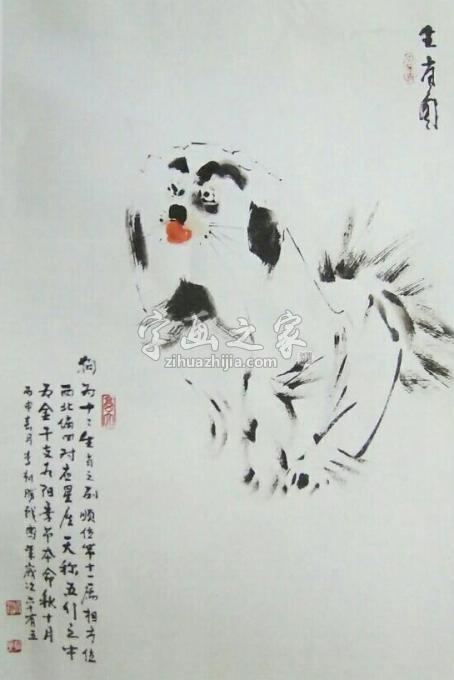 生肖图
字画之家
zihuazhijia.com
狗为十二生肖之列顺位第十一属相方位
西北偏西对应星座天秤五行之中
为金干支为阳季节本命秋十月
丙申春月李利胜戏岁次六十有五